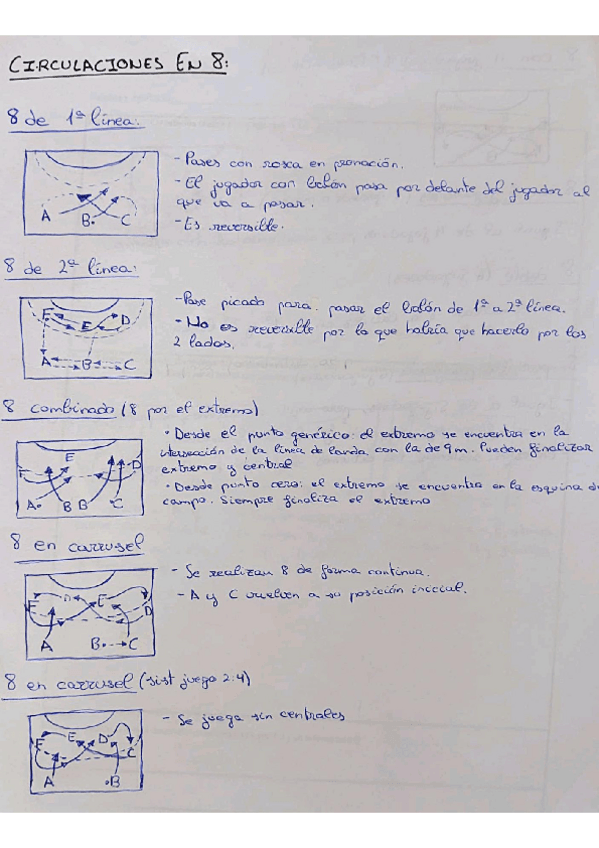 CIRCULACIONES EN 8:
8 de 1ª línea:
- Pases con rosca en pronación.
- El jugador con balón pasa por delante del jugador al
que va a pasar.
- Es reversible.
A B C
8 de 2ª línea:
- Pase picado para pasar el balón de 1ª a 2ª línea.
- No es reversible por lo que habría que hacerlo por los
2 lados.
F E D
A B C
8 combinado (8 por el extremo)
• Desde el punto genérico: el extremo se encuentra en la
intersección de la línea de banda con la de 9m. Pueden finalizar
extremo y central
• Desde punto cero: el extremo se encuentra en la esquina de
campo. Siempre finaliza el extremo
F E D
A B B C
8 en carrusel
- Se realizan 8 de forma continua.
- A y C vuelven a su posición inicial.
F D E D
A B C
8 en carrusel (sist juego 2:4)
- Se juega sin centrales
F E D C
A B